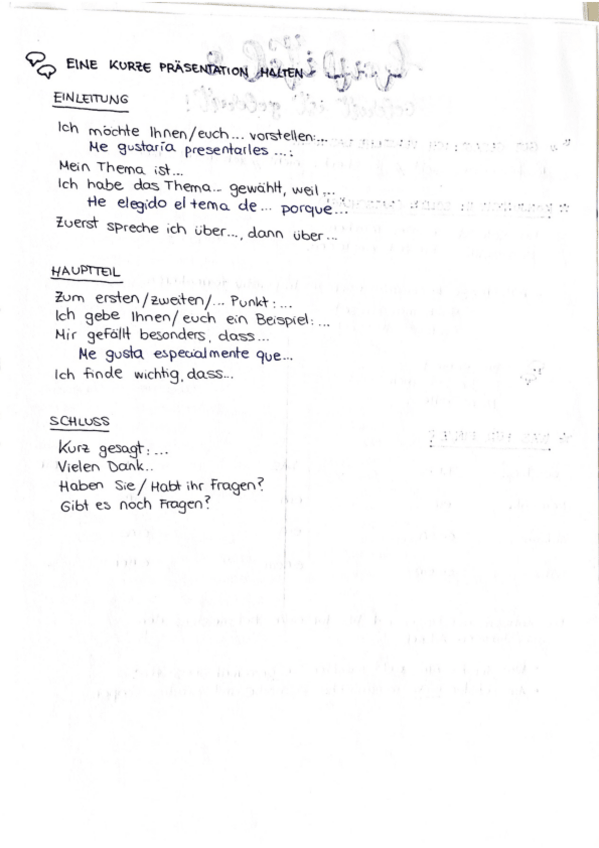 EINE KURZE PRÄSENTATION HALTEN
EINLEITUNG
Ich möchte Ihnen/euch... vorstellen:...
Me gustaría presentarles ...:
Mein Thema ist...
Ich habe das Thema... gewählt, weil ...
He elegido el tema de... porque...
Zuerst spreche ich über..., dann über...
HAUPTTEIL
Zum ersten/zweiten/... Punkt:...
Ich gebe Ihnen/euch ein Beispiel:...
Mir gefällt besonders, dass...
Me gusta especialmente que...
Ich finde wichtig, dass...
SCHLUSS
Kurz gesagt:...
Vielen Dank..
Haben Sie/Habt ihr Fragen?
Gibt es noch Fragen?